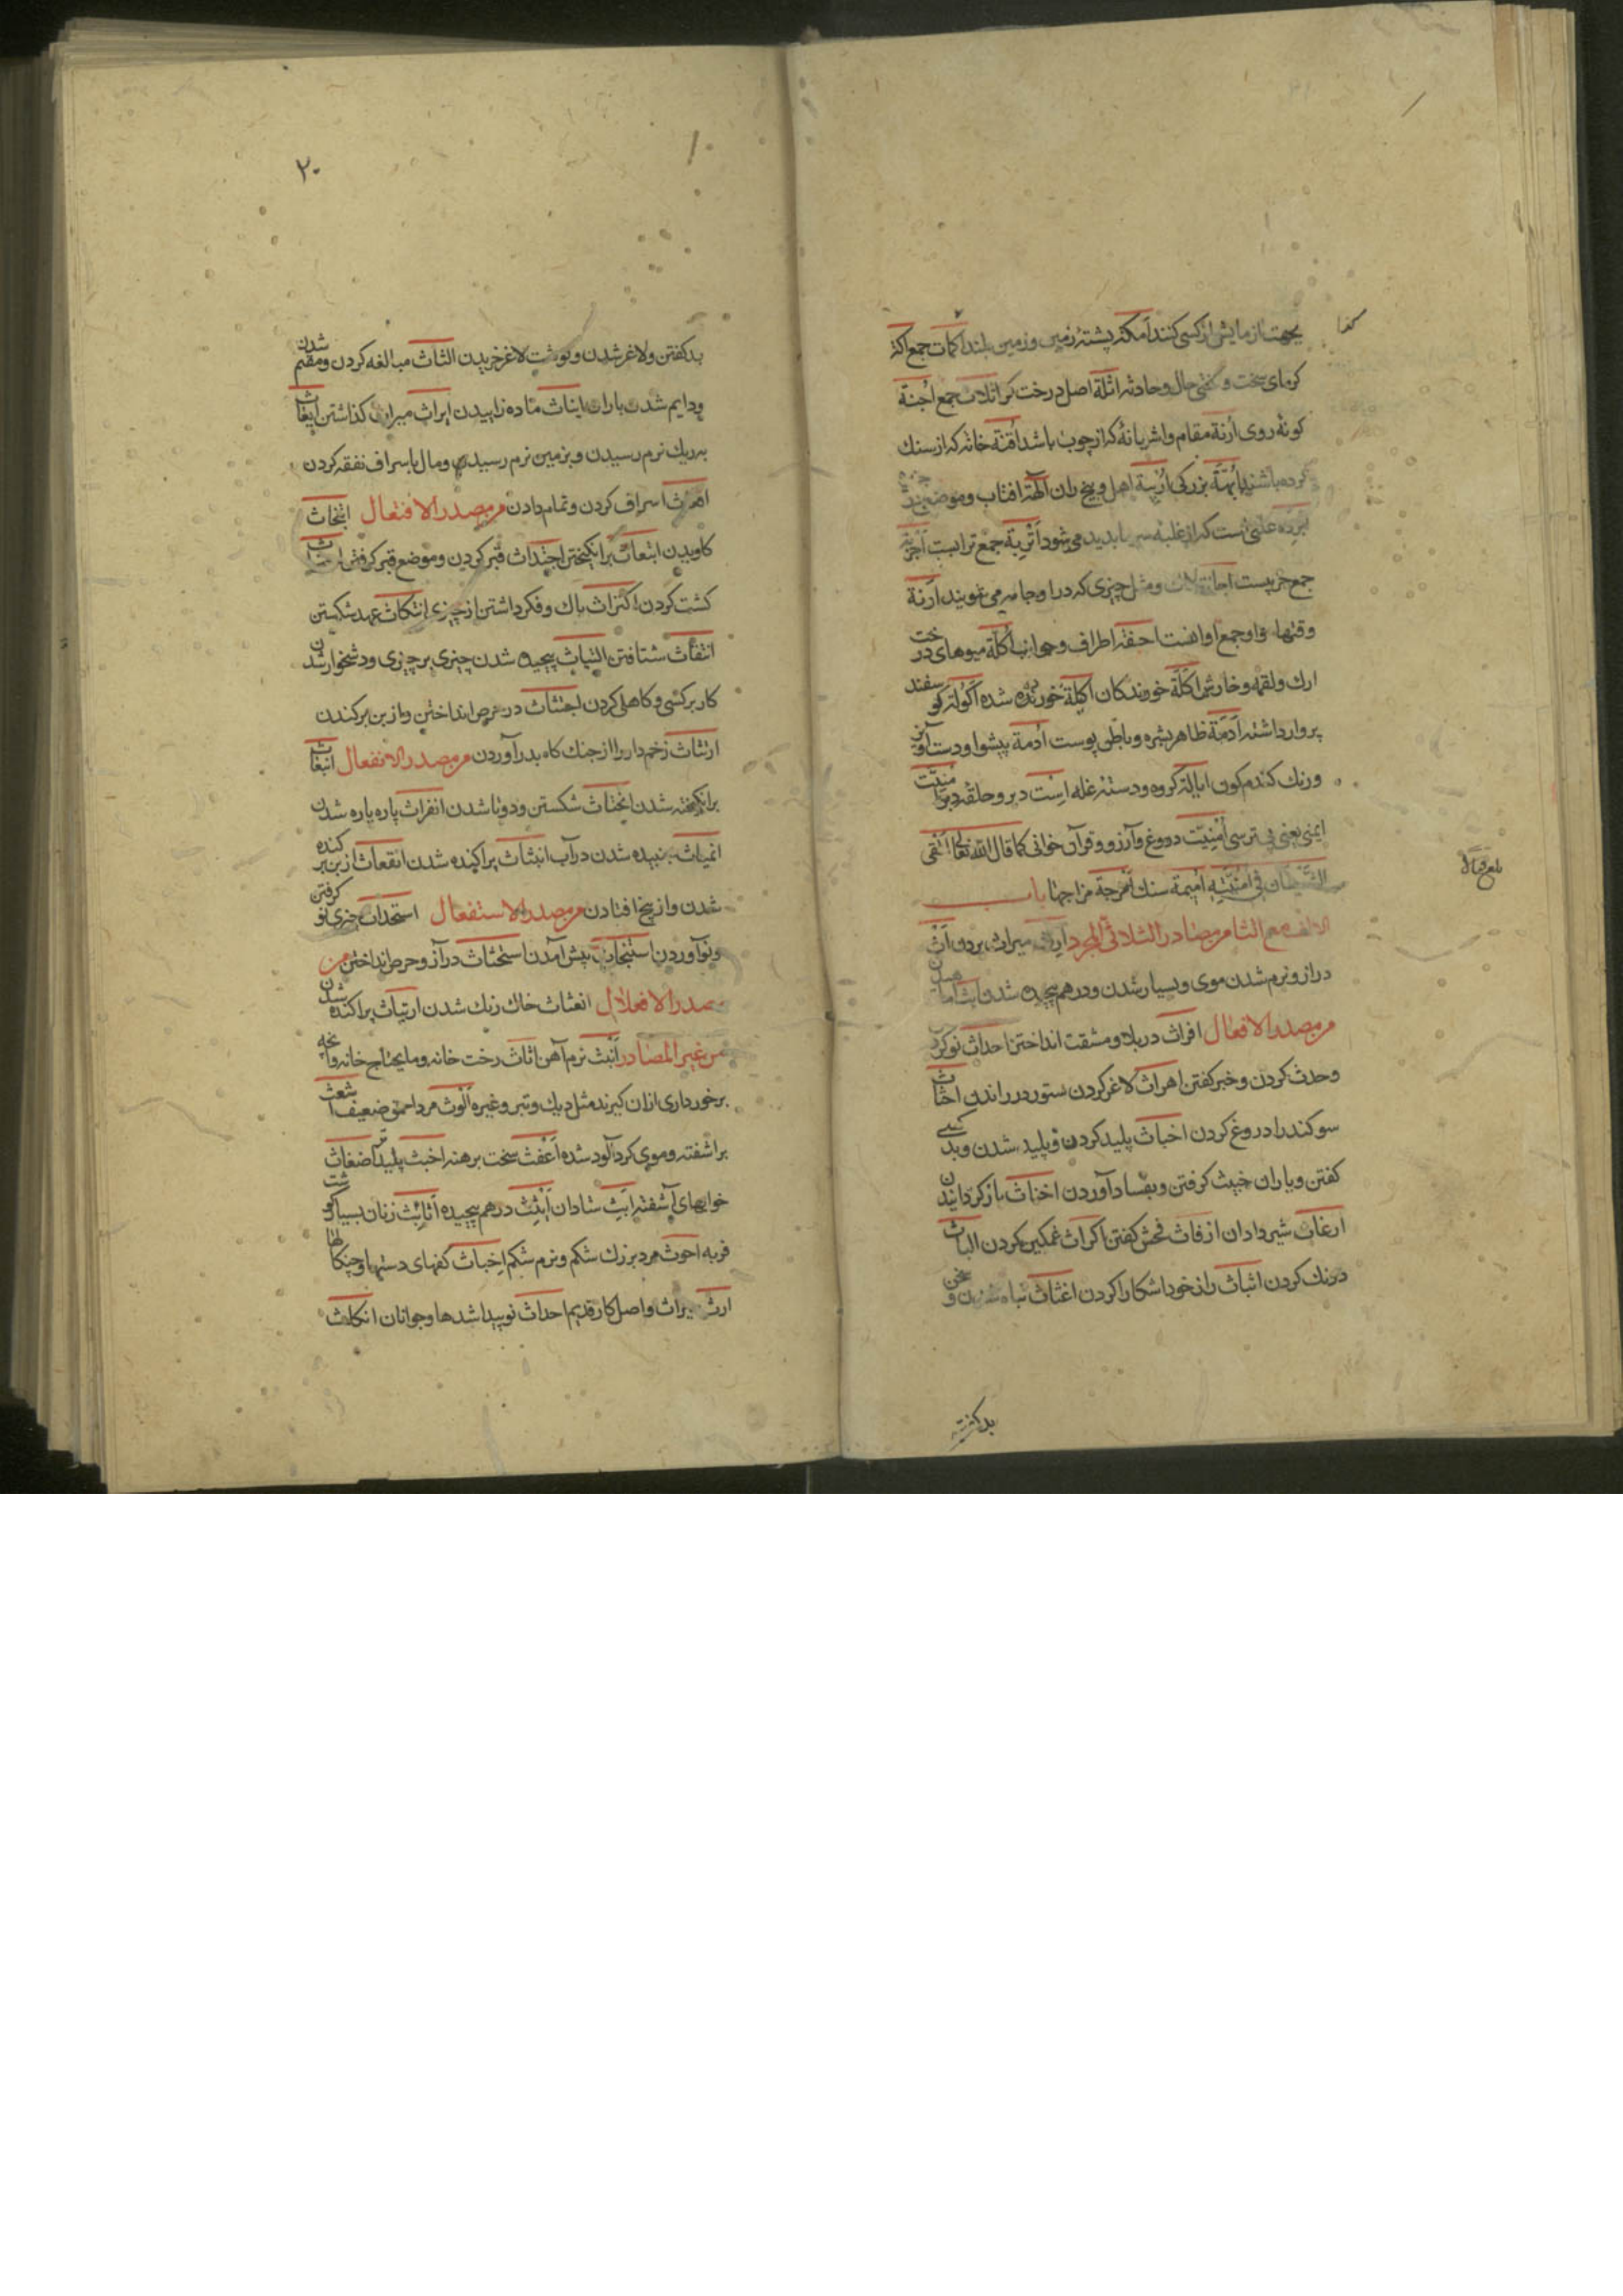 بجهت ازمایش از کسی کنند اکمة پشتهٔ زمین و زمین بلند اکمات جمع اکمة
کرمای سخت و سختی حال و حادثه اثلة اصل درخت کز اثلات جمع اجنة
کونهٔ روی ارنة مقام و اشربانهٔ که از چوب باشد اقنة خانه که از سنک
کرده باشند ابهة بزرکی اربیة اهل و بیخ ران الهة افتاب و موضع
ابرده علتی است که از غلبه سرما بدید می شود اتربة جمع ترابست اجربة
جمع جریبست اجانة لاک و مثل چیزی که در او جامه می شویند ارنة
وقتها و او جمع اوانست احفة اطراف و جوانب اکلة میوهای درخت
ارک و لقمه و خارش اکلة خورندکان اکیلة خورده شده اکولة کوسفند
پروار داشته ادمة ظاهر بشره و باطن پوست ادمة پیشوا و دست آویز
و رنک کندم کون ابالة کروه و دستهٔ غله است دبر و حلقه دبر امنیت
ایمنی یعنی بی ترسی امنیت دروغ و آرزو و قرآن خوانی کما قال الله تعالی القی
الشیطان فی امنیته امیمة سنک امزجة مزاجها باب
الالف مع الثا من مصادر الثلاثی المجرد ارث میراث بردن اث
دراز و نرم شدن موی و بسیار شدن و درهم پیچیده شدن
من مصدر الافعال افراث در بلا و مشقت انداختن احداث نو کردن
و حدث کردن و خبر کفتن اهراث لاغر کردن ستور در راندن احناث
سوکند را دروغ کردن اخباث پلید کردن و پلید شدن و بد کسی
کفتن و یاران خبیث کرفتن و بفساد آوردن اخناث باز کردانیدن
ارغاث شیر دادن ارفاث فحش کفتن اکراث غمکین کردن الباث
درنک کردن ابثاث راز خود اشکارا کردن اغثاث تباه شدن سخن و
بد کفتن
۲۰
بد کفتن و لاغر شدن و کوشت لاغر خریدن الثاث مبالغه کردن و مقیم شدن
و دایم شدن باران ایناث ماده زاییدن ایراث میراث کذاشتن ایعاث
بریک نرم رسیدن و بزمین نرم رسیدن و مال باسراف نفقه کردن
اسراف کردن و تمام دادن من مصدر الافتعال ابتحاث
کاویدن ابتعاث برانکیختن اجتداث قبر کردن و موضع قبر کرفتن احتراث
کشت کردن اکتراث باک و فکر داشتن از چیزی انتکاث عهد شکستن
انتقاث شتافتن التیاث پیچیده شدن چیزی بر چیزی و دشخوار شدن
کار بر کسی و کاهلی کردن اجتثاث در حرص انداختن و از بن برکندن
ارتثاث زخم دار را از جنک کاه بدر آوردن من مصدر الانفعال انبعاث
برانکیخته شدن انخناث شکستن و دوتا شدن انفراث پاره پاره شدن
انمیاث جنبیده شدن در آب انبثاث پراکنده شدن انقعاث از بن برکنده
شدن و از بیخ افتادن من مصدر الاستفعال استحداث چیزی نو کرفتن
و نو آوردن استنجاث پیش آمدن استحثاث در آز و حرص انداختن من
مصدر الافعلال اغثاث خاک رنک شدن اربثاث پراکنده شدن
من غیر المصادر انیث نرم آهن اثاث رخت خانه و مایحتاج خانه و آنچه
برخورداری ازان کیرند مثل دیک و تبر و غیره الوث مرد احمق ضعیف اشعث
براشفته و موی کرد آلود شده اعفث سخت برهنه اخبث پلیدتر اضغاث
خوابهای آشفته ابث شادان انبث درهم پیچیده اثایث زنان بسیار کوشت
فربه احوث مرد بزرک شکم و نرم شکم اخباث کفهای دستها و چنکالها
ارث میراث و اصل کار قدیم احداث نو پیدا شدها و جوانان انکاث